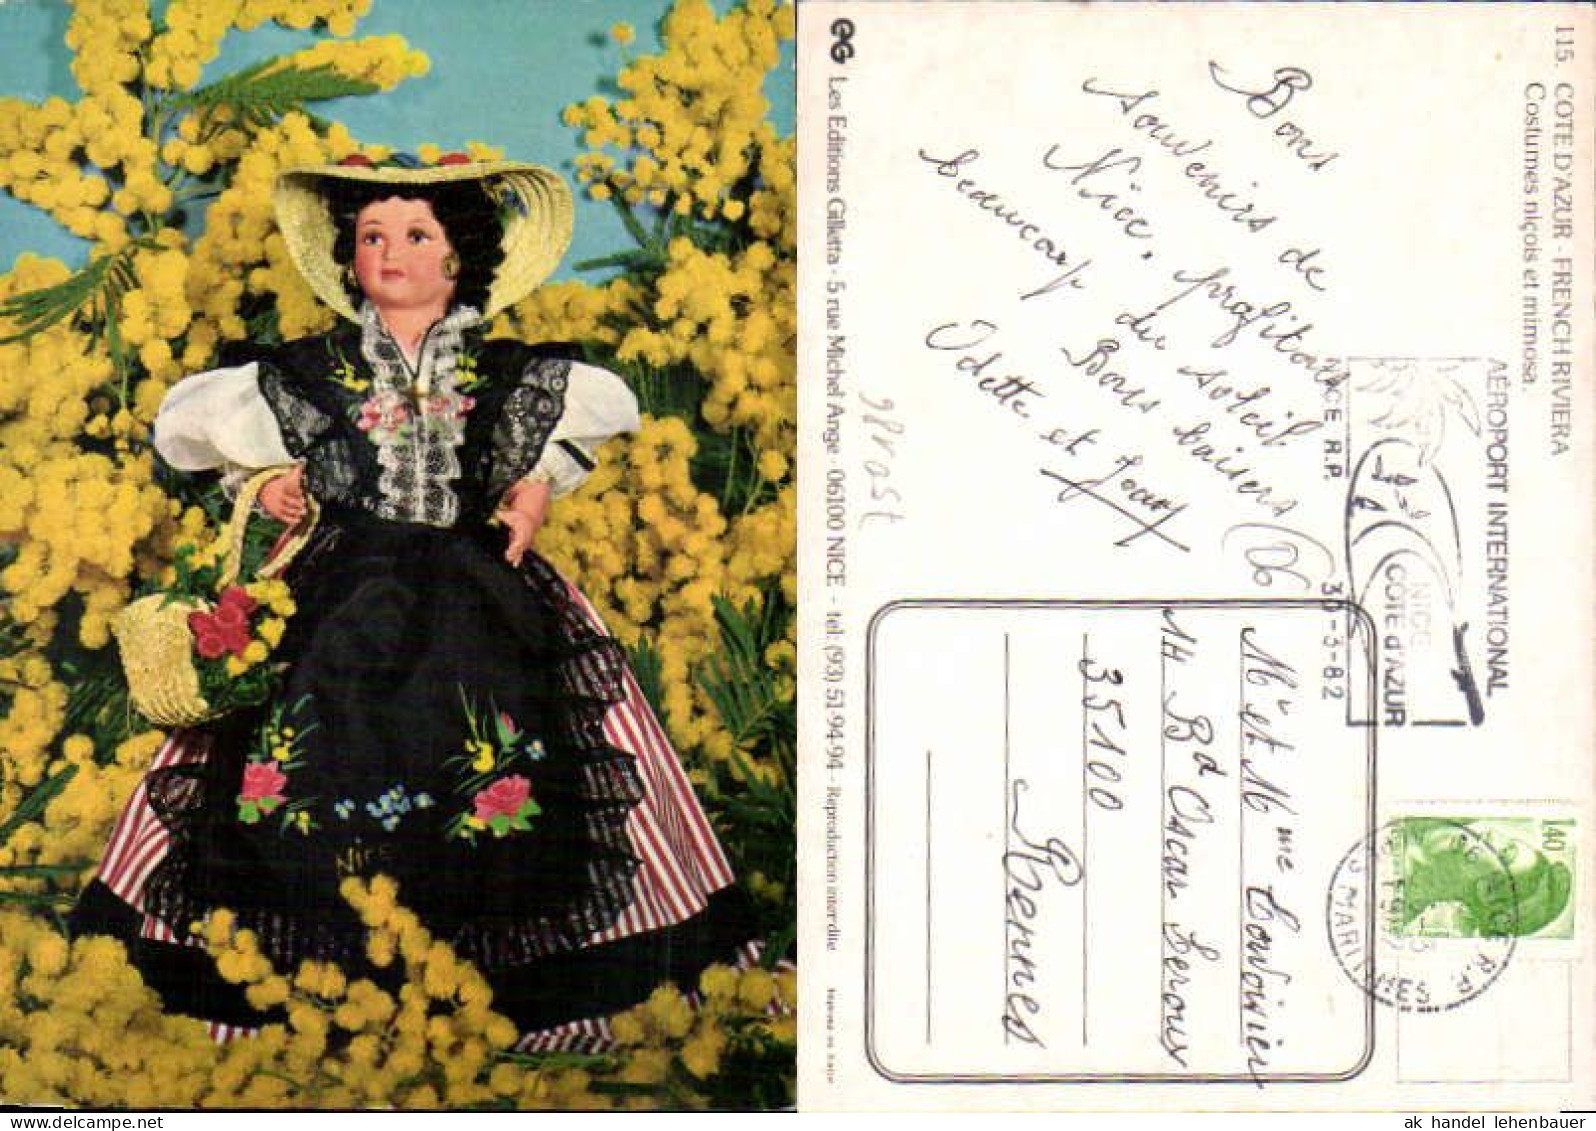 NICE
115. COTE D'AZUR - FRENCH RIVIERA
Costumes niçois et mimosa.
Bons
souvenirs de
Nice, profitons
beaucoup du soleil
Bons baisers
Odette et
AÉROPORT INTERNATIONAL
NICE
CÔTE d'AZUR
R.P.
30-3-82
06
1,40
NICE R.P.
Mr et Mme
Bd Oscar Leroux
35100
Rennes
Les Editions Gilletta - 5 rue Michel Ange - 06100 NICE - tel: (93) 51-94-94 - Reproduction interdite
ak handel lehenbauer